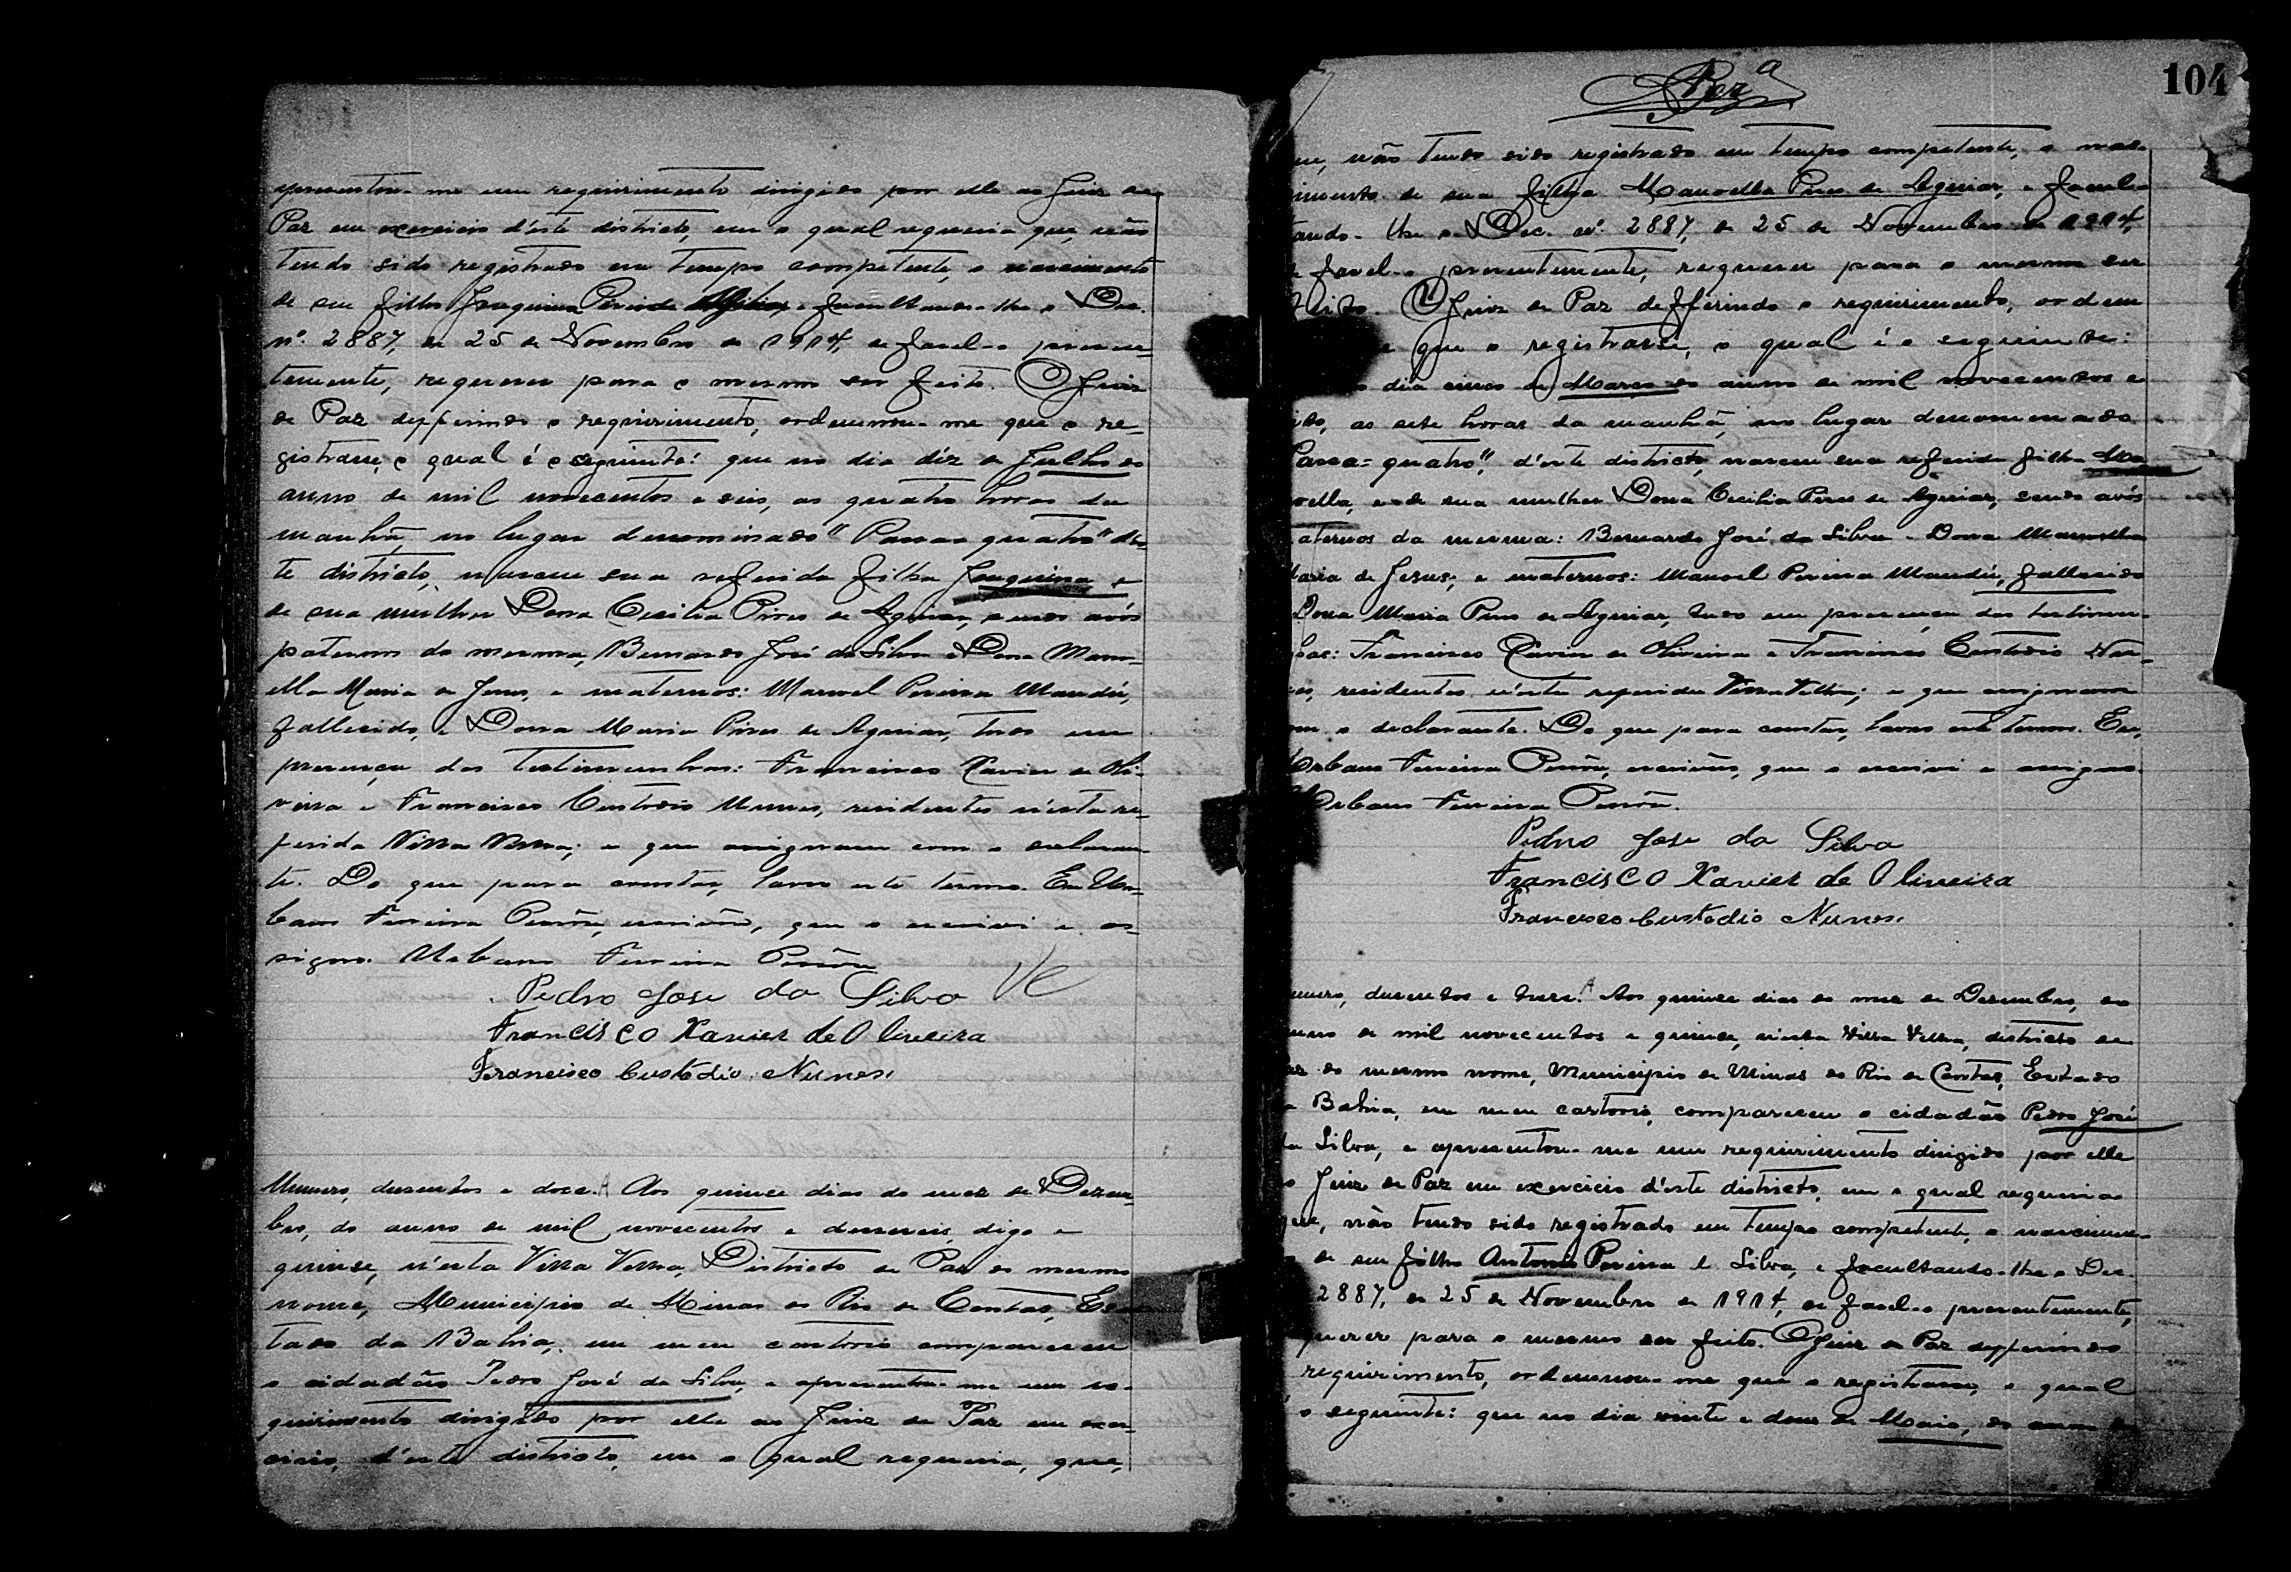 apresentou-me um requirimento dirigido por elle ao Juiz de
Paz em exercicio d'este districto, em o qual requeria que, não
tendo sido registrado em tempo competente, o nascimento
de sua filha Joaquina Pires de Aguiar, e facultando-lhe o Dec.
nº. 2887, de 25 de Novembro de 1914, de fasel-o presen-
temente, requerer para o mesmo ser feito. O Juiz
de Paz defferindo o requirimento, ordenou-me que o re-
gistrasse, o qual é o seguinte: que no dia déz de Julho do
anno de mil novecentos e seis, as quatro horas da
manhã, no lugar denominado "Passa quatro" d'es-
te districto, nasceu sua referida filha Joaquina e
de sua mulher Dona Cecilia Pires de Aguiar, sendo avós
paternos da mesma, Bernardo José da Silva e Dona Mano-
ella Maria de Jesus, e maternos: Manoel Pereira Mandú,
fallecido, e Dona Maria Pires de Aguiar, tudo em
presença das testimunhas: Francisco Xavier de Oli-
veira e Francisco Custodio Nunes, residentes n'esta re-
ferida Villa Velha; e que assignaram com o declaran-
te. Do que para constar, lavro este termo. Eu Ur-
bano Ferreira, escrivão, que o escrevi e as-
signo. Urbano Ferreira
Pedro Jose da Silva
Francisco Xavier de Oliveira
Francisco Custodio Nunes.
Numero, dusentos e dose. Aos quinse dias do mes de Desem-
bro, do anno de mil novecentos e desseseis, digo e
quinse, n'esta Villa Velha, Districto de Paz do mesmo
nome, Municipio de Minas do Rio de Contas, Es-
tado da Bahia, em meu cartorio compareceu
o cidadão Pedro José da Silva, e apresentou-me um re-
quirimento dirigido por elle ao Juiz de Paz em exer-
cicio, d'este districto, em o qual requeria, que,
104
que, não tendo sido registrado em tempo competente, o nas-
cimento de sua filha Manoella Pires de Aguiar, e facul-
tando-lhe o Dec. nº. 2887, de 25 de Novembro de 1914,
de fasel-o presentemente, requerer para o mesmo ser
feito. O Juiz de Paz defferindo o requirimento, ordem
que o registrasse, o qual é o seguinte:
dia cinco de Março do anno de mil novecentos e
as sete horas da manhã, no lugar denominado
Passa-quatro", d'este districto, nasceu sua referida filha Ma-
noella, e de sua mulher Dona Cecilia Pires de Aguiar, sendo avós
paternos da mesma: Bernardo José da Silva e Dona Manoella
Maria de Jesus, e maternos: Manoel Pereira Mandú, fallecido
Dona Maria Pires de Aguiar, tudo em presença das testimu-
nhas: Francisco Xavier de Oliveira e Francisco Custodio Nu-
nes, residentes n'esta referida Villa Velha; e que assignaram
com o declarante. Do que para constar, lavro este termo. Eu,
Urbano Ferreira, escrivão, que o escrevi e assigno.
Urbano Ferreira
Pedro Jose da Silva
Francisco Xavier de Oliveira
Francisco Custodio Nunes.
Numero, dusentos e trese. Aos quinse dias do mez de Desembro, do
anno de mil novecentos e quinse, n'esta Villa Velha, districto de
Paz do mesmo nome, Municipio de Minas do Rio de Contas, Estado
da Bahia, em meu cartorio, compareceu o cidadão Pedro José
da Silva, e apresentou-me um requirimento dirigido por elle
ao Juiz de Paz em exercicio d'este districto, em o qual requeria
que, não tendo sido registrado em tempo competente, o nascimen-
de seu filho Antonio Pereira e Silva, e facultando-lhe o Dec.
2887, de 25 de Novembro de 1914, de fasel-o presentemente,
requerer para o mesmo ser feito. O Juiz de Paz defferindo
requirimento, ordenou-me que o registrasse, o qual
o seguinte: que no dia vinte e dous de Maio, do anno de